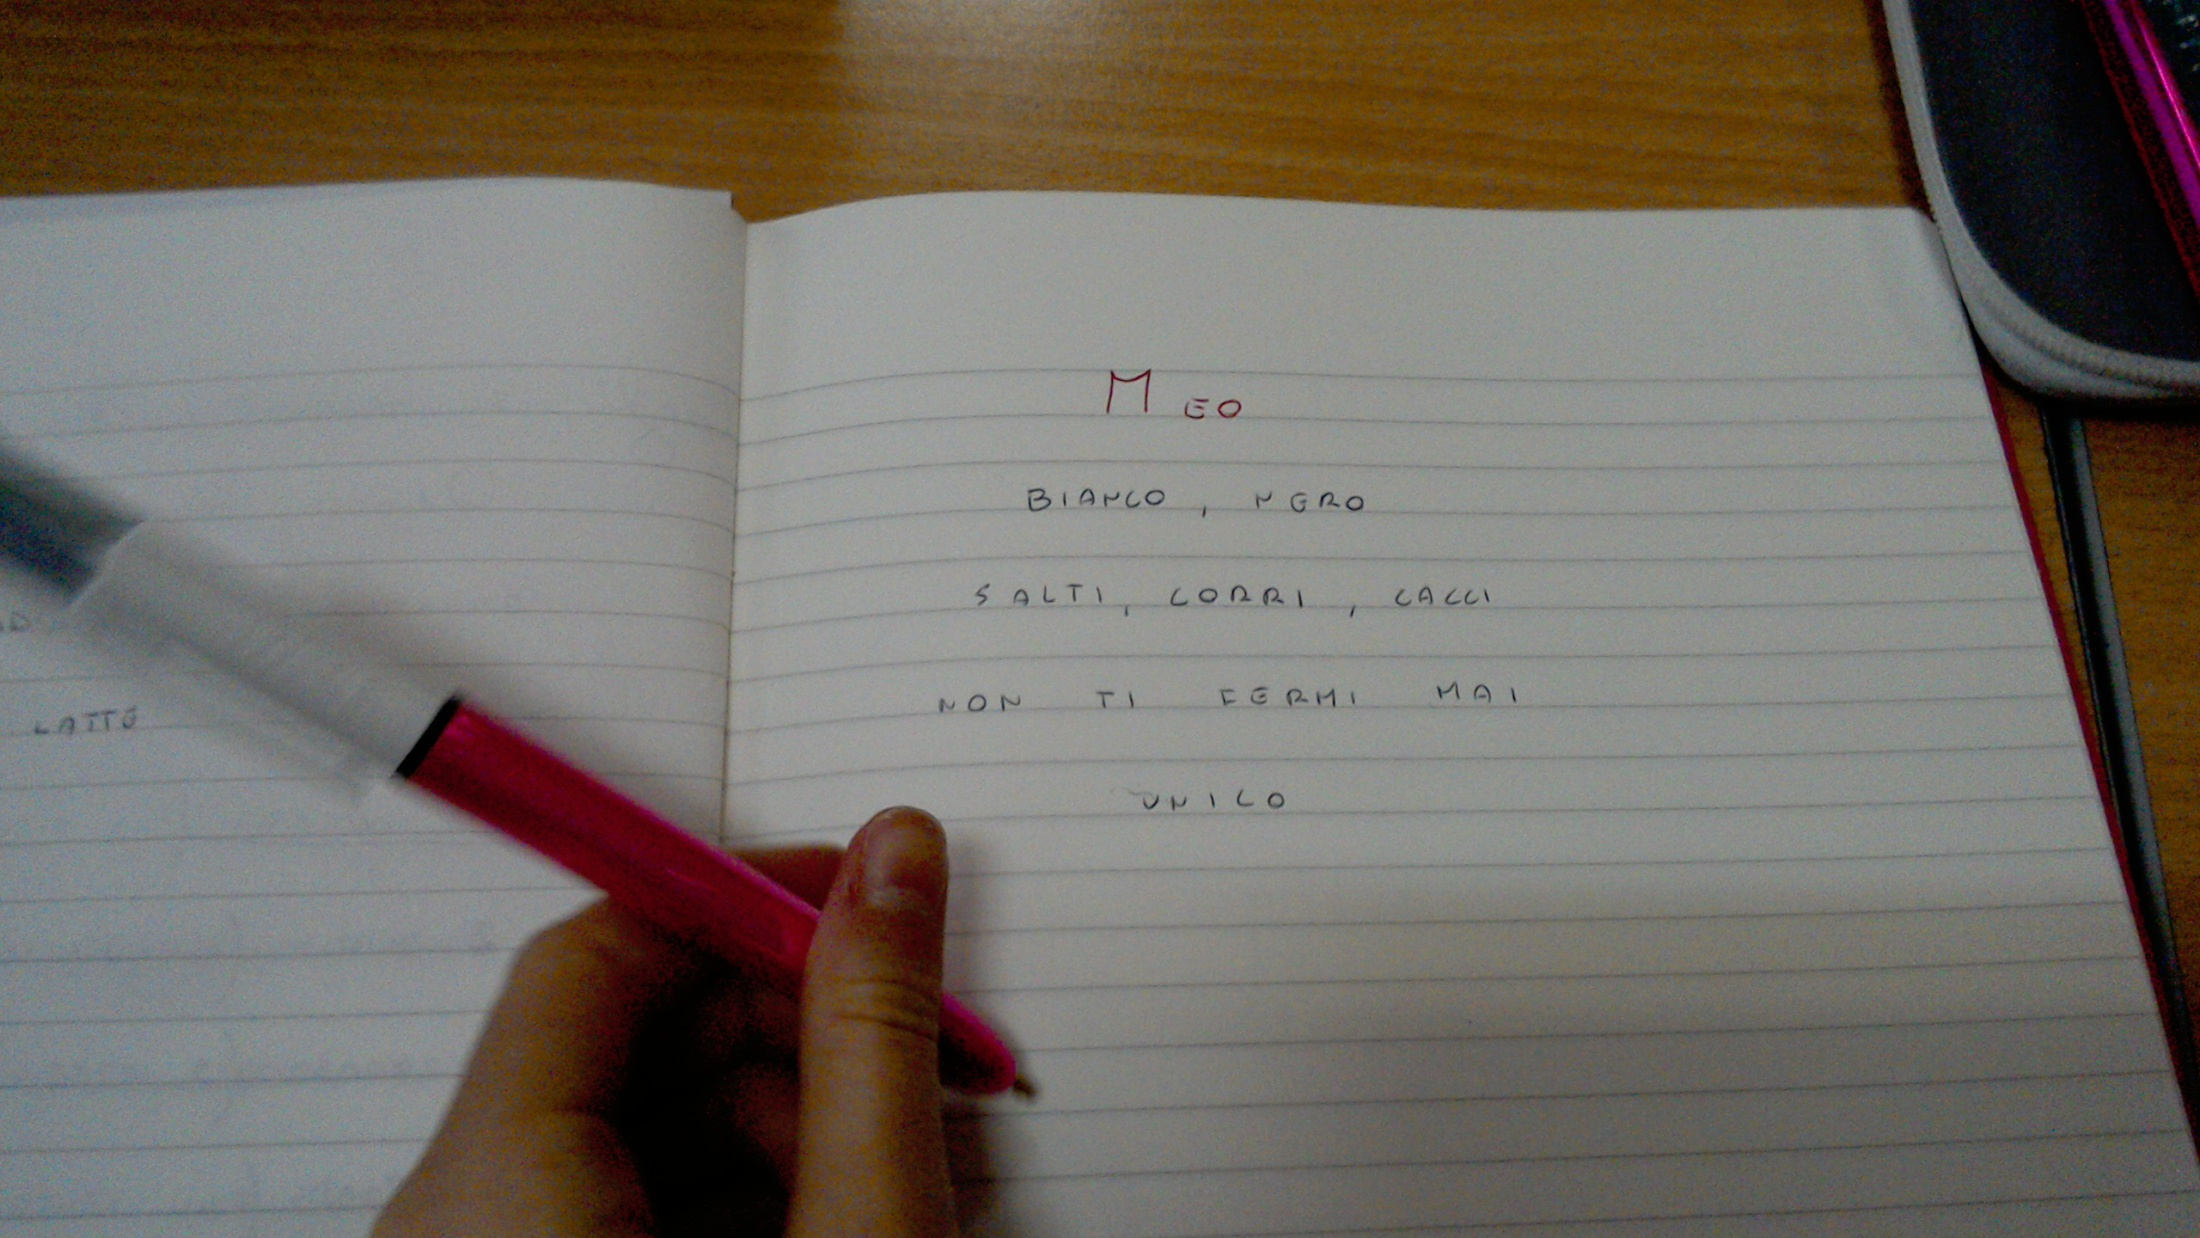 LATTE
MEO
BIANCO, NERO
SALTI, CORRI, CACCI
NON TI FERMI MAI
UNICO